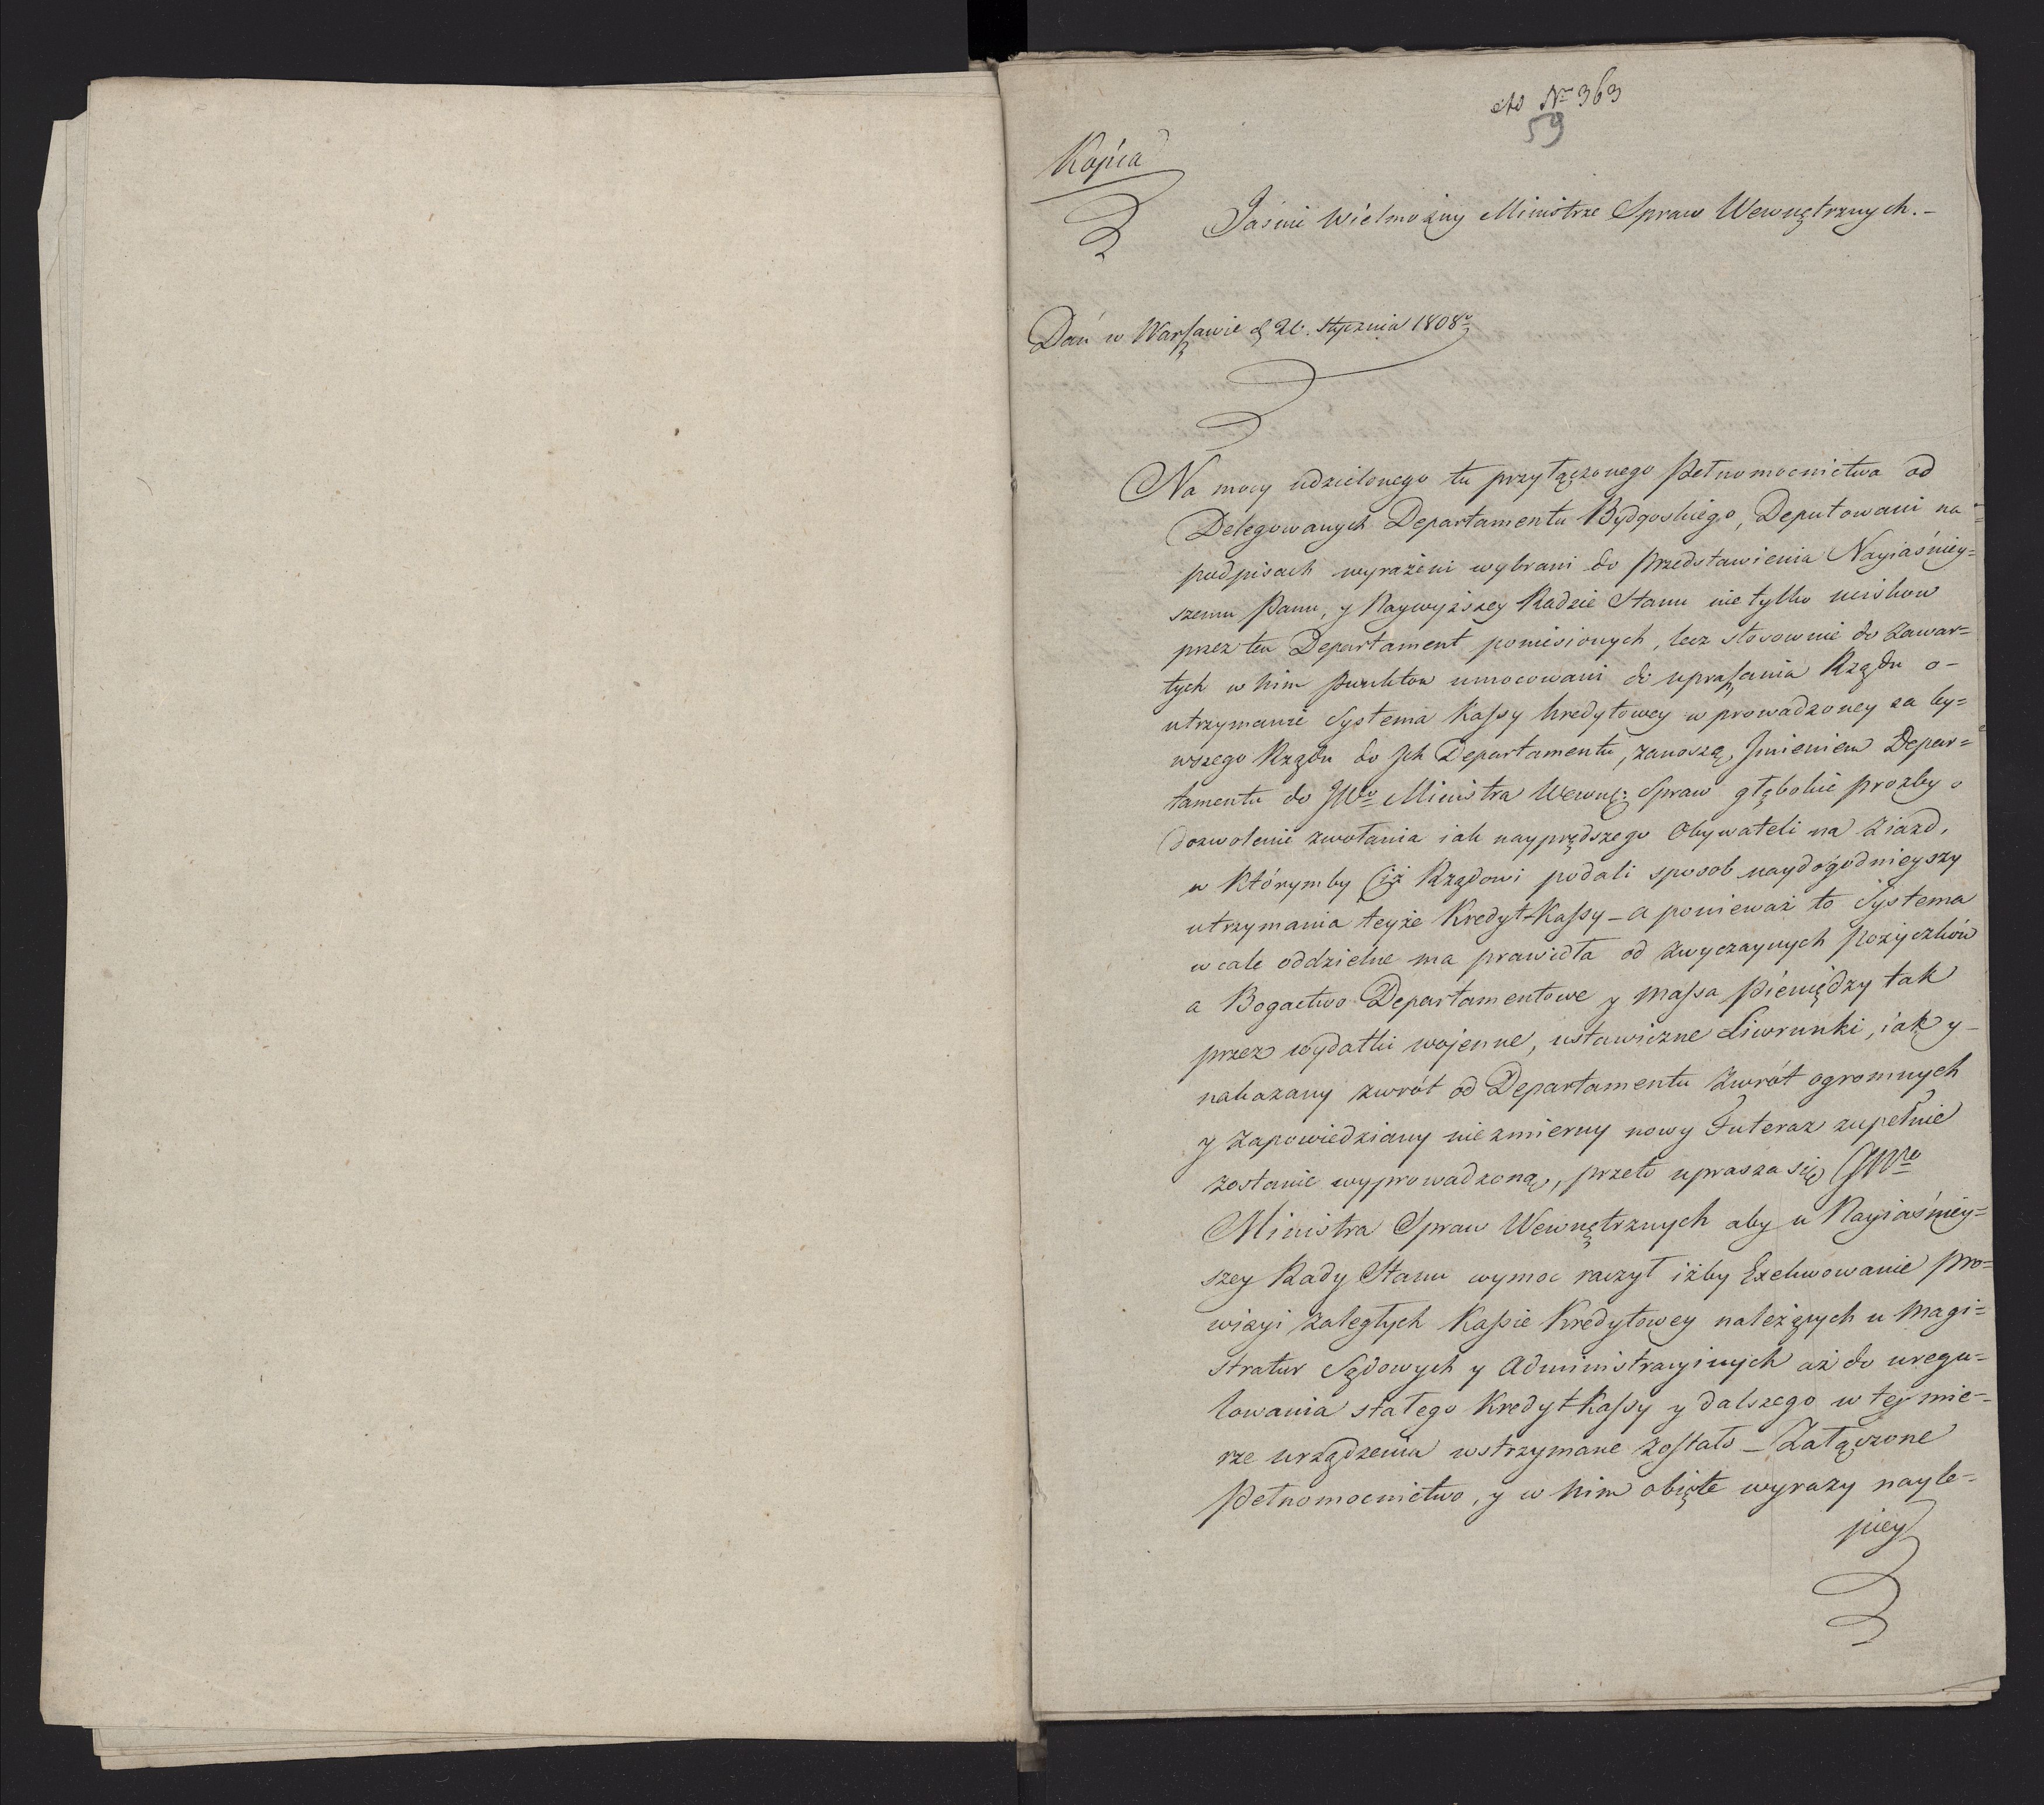 ad Nr 363
59
Kopia
Jaśnie Wielmożny Ministrze Spraw Wewnętrznych.-
Dań w Warszawie d 20. Stycznia 1808
Na mocy udzielonego tu przyłączonego Pełnomocnictwa od
Delegowanych Departamentu Bydgoskiego, Deputowani na
podpisach wyrażeni wybrani do przedstawienia Nayiaśniey=
szemu Panu, y Naywyższey Radzie Stanu nie tylko ucisków
przez ten Departament poniesionych, lecz stosownie do zawar=
tych w nim punktow umocowani do upraszania Rządu o-
utrzymanie Systema Kassy kredytowey wprowadzoney za by=
wszego Rządu do Jch Departamentu, zanoszą Jmieniem Depar=
tamentu do JWo Ministra Wewnę: Spraw głębokie prozby o
dozwolenie zwołania iak nayprędszego Obywateli na Ziazd,
w którymby iż Rządowi podali sposob naydogodnieyszy
utrzymania teyże Kredyt-Kassy - a ponieważ to Systema
wcale oddzielne ma prawidła od zwyczaynych Pożyczków
a Bogactwo Departamentowe y massa pieniędzy tak
przez wydatki wojenne, ustawiczne Liwrunki, iak y-
nakazany zwrót od Departamentu Zwrót ogromnych
y Zapowiedziany niezmierny nowy Futeraz zupełnie
zostanie wyprowadzoną, przeto uprasza się JWgo
Ministra Spraw Wewnętrznych aby u Nayiaśniey=
szey Rady Stanu wymoc raczył iżby Exekwowanie pro=
wizyi zaległych Kassie Kredytowey należących u Magi=
stratur Sądowych y Administracyinych aż do uregu=
lowania stałego Kredyt-Kassy y dalszego w tey mie-
rze urządzenia wstrzymane zostało - Załączone
Pełnomocnictwo, y w nim obięte wyrazy nayle-
piey